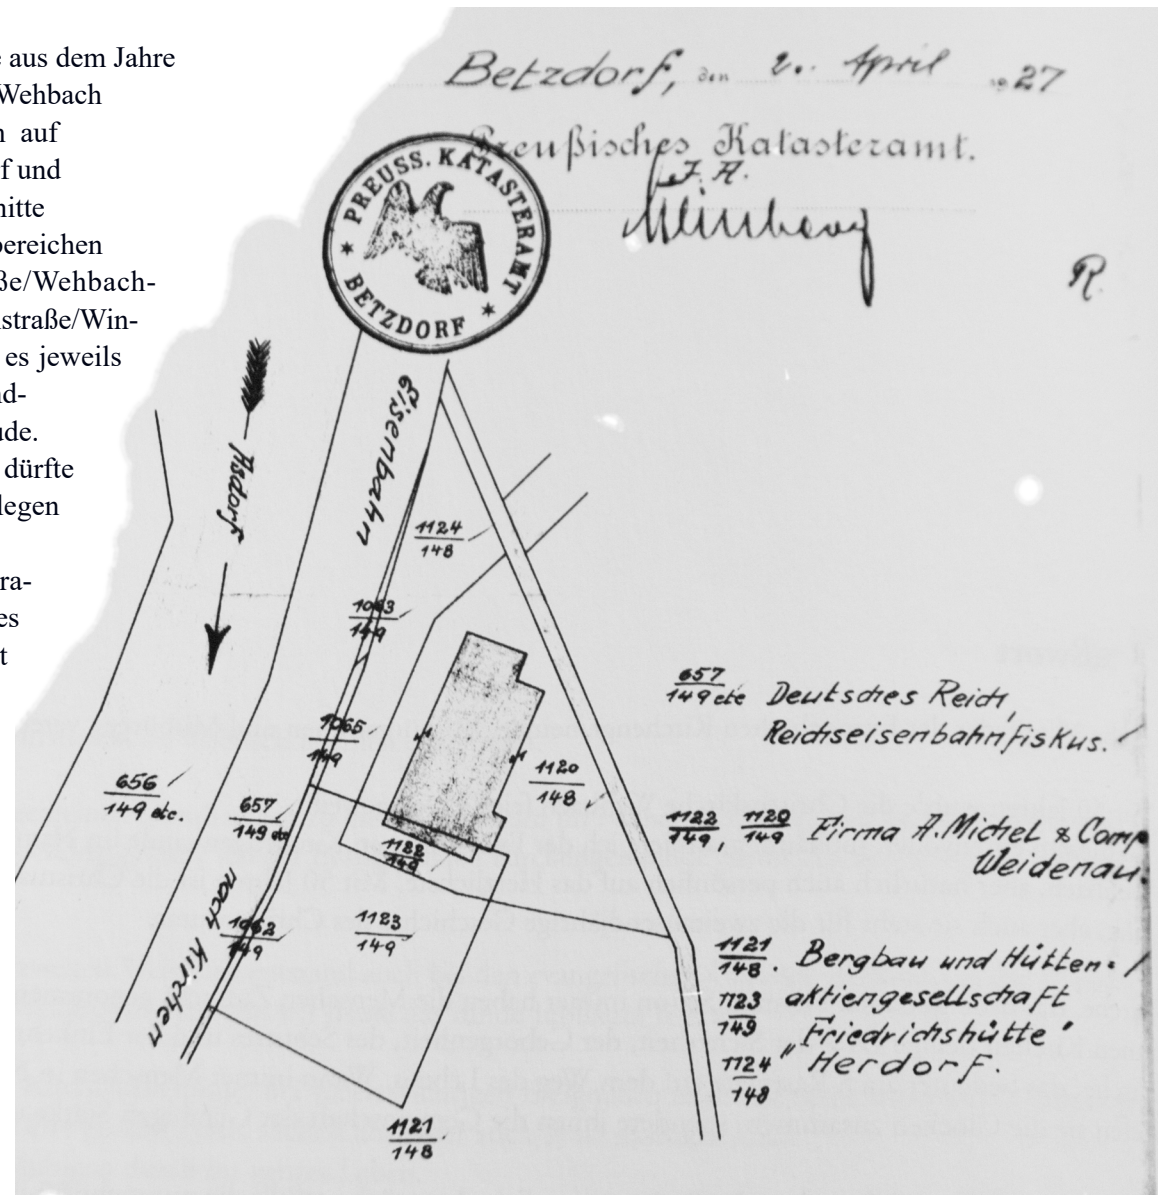 aus dem Jahre
Wehbach
auf
f und
nitte
bereichen
ße/Wehbach-
straße/Win-
es jeweils
nd-
ude.
dürfte
legen
ra-
es
t
Betzdorf, den 2. April 1927
Preußisches Katasteramt.
J. A.
R.
PREUSS. KATASTERAMT
BETZDORF
Eisenbahn
Asdorf
1124
148
1063
149
1065
149
656
149 etc.
657
149 etc
1120
148
1122
149
1123
149
1062
149
nach Kirchen
1121
148
657
149 etc Deutsches Reich,
Reichseisenbahnfiskus.
1122
149, 1120
149 Firma A. Michel & Comp
Weidenau
1121
148. Bergbau und Hütten-
1123
149 aktiengesellschaft
„Friedrichshütte"
1124
148 Herdorf.